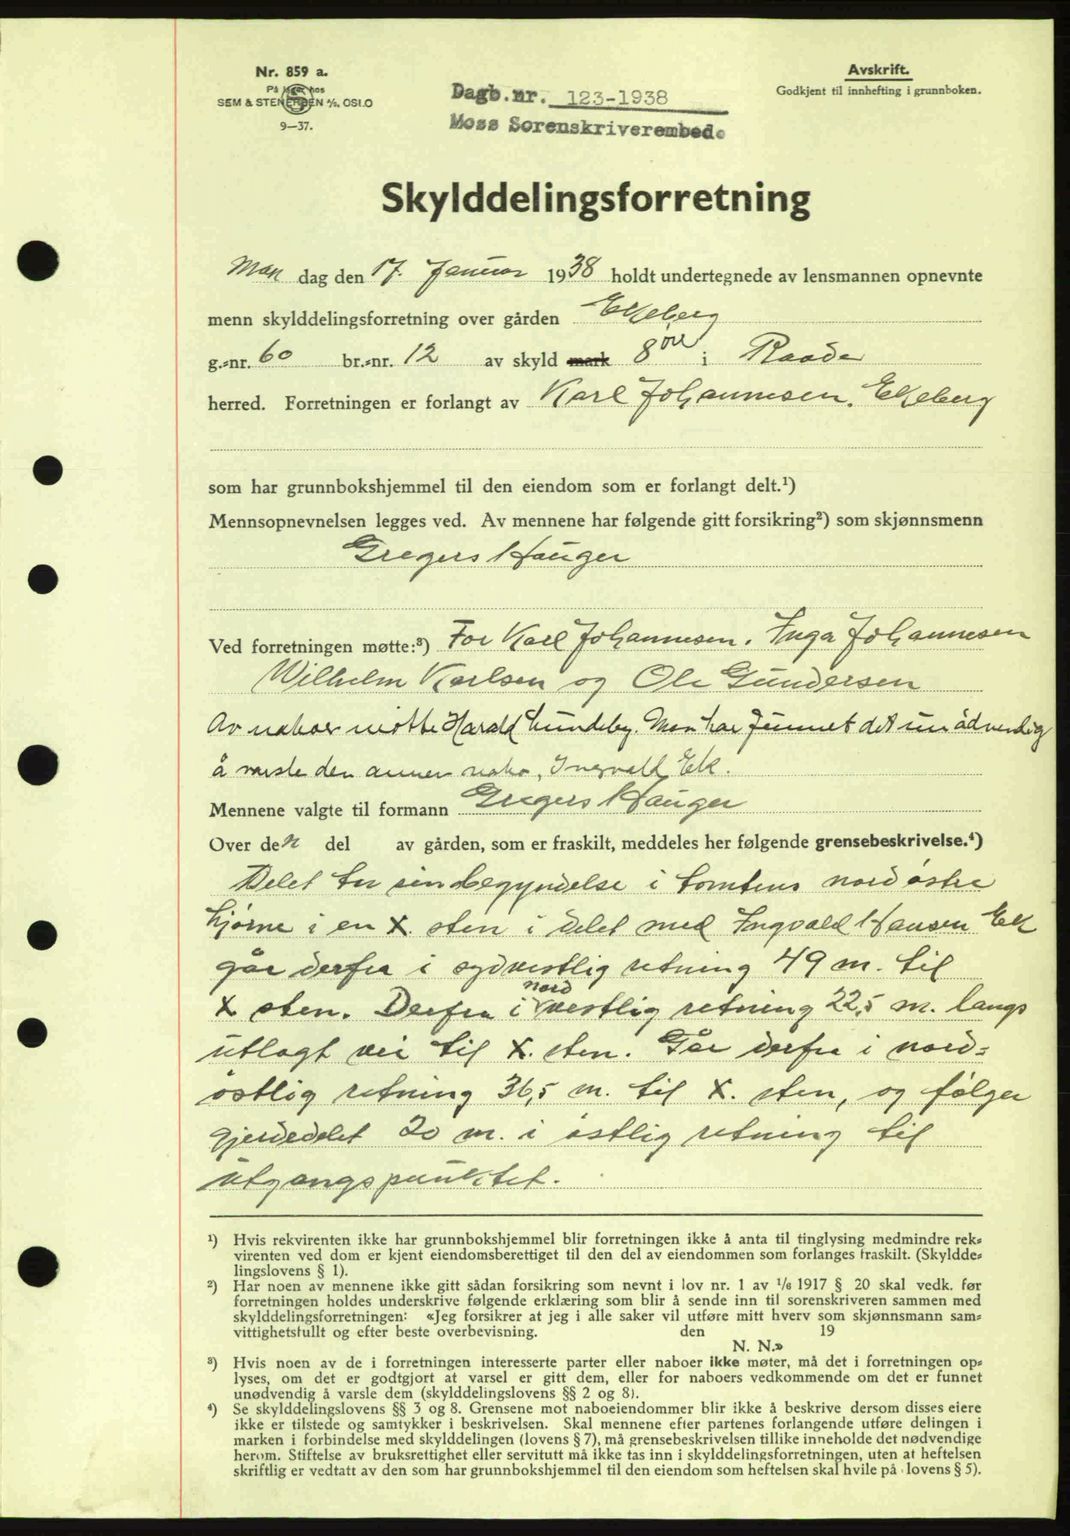 Nr. 859 a.
På lager hos
SEM & STENERSEN A/S, OSLO
9—37.
Dagb.nr. 123-1938
Moss Sorenskriverembede
Avskrift.
Godkjent til innhefting i grunnboken.
Skylddelingsforretning
Man dag den 17. Januar 1938 holdt undertegnede av lensmannen opnevnte
menn skylddelingsforretning over gården Ekeberg
g.-nr. 60 br.-nr. 12 av skyld mark 8 øre i Raade
herred. Forretningen er forlangt av Karl Johannesen. Ekeberg
som har grunnbokshjemmel til den eiendom som er forlangt delt.¹)
Mennsopnevnelsen legges ved. Av mennene har følgende gitt forsikring²) som skjønnsmenn
Gregers Hauger
Ved forretningen møtte:³) For Karl Johannesen. Inga Johannesen
Wilhelm Karlsen og Ole Gundersen
Av naboer møtte Harald Lundeby. Man har funnet det unådvendig
å varsle den annen nabo, Ingvald Ek.
Mennene valgte til formann Gregers Hauger
Over den del av gården, som er fraskilt, meddeles her følgende grensebeskrivelse.⁴)
Delet tar sin begyndelse i tomtens nordøstre
hjørne i en X. sten i delet med Ingvald Hansen Ek
går derfra i sydvestlig retning 49 m. til
X sten. Derfra i nordvestlig retning 22,5 m. langs
utlagt vei til X. sten. Går derfra i nord-
østlig retning 36,5 m. til X. sten, og følger
gjerdedelet 20 m. i østlig retning til
utgangspunktet.
¹) Hvis rekvirenten ikke har grunnbokshjemmel blir forretningen ikke å anta til tinglysing medmindre rek-
virenten ved dom er kjent eiendomsberettiget til den del av eiendommen som forlanges fraskilt. (Skyldde-
lingslovens § 1).
²) Har noen av mennene ikke gitt sådan forsikring som nevnt i lov nr. 1 av 1/6 1917 § 20 skal vedk. før
forretningen holdes underskrive følgende erklæring som blir å sende inn til sorenskriveren sammen med
skylddelingsforretningen: «Jeg forsikrer at jeg i alle saker vil utføre mitt hverv som skjønnsmann sam-
vittighetsfullt og efter beste overbevisning. den 19
N. N.»
³) Hvis noen av de i forretningen interesserte parter eller naboer ikke møter, må det i forretningen op-
lyses, om det er godtgjort at varsel er gitt dem, eller for naboers vedkommende om det er funnet
unødvendig å varsle dem (skylddelingslovens §§ 2 og 8).
⁴) Se skylddelingslovens §§ 3 og 8. Grensene mot naboeiendommer blir ikke å beskrive dersom disses eiere
ikke er tilstede og samtykker i beskrivelsen. Skal mennene efter partenes forlangende utføre delingen i
marken i forbindelse med skylddelingen (lovens § 7), må grensebeskrivelsen tillike inneholde det nødvendige
herom. Stiftelse av bruksrettighet eller servitutt må ikke tas inn i skylddelingsforretningen, uten at heftelsen
skriftlig er vedtatt av den som har grunnbokshjemmel til den eiendom som heftelsen skal hvile på lovens § 5).